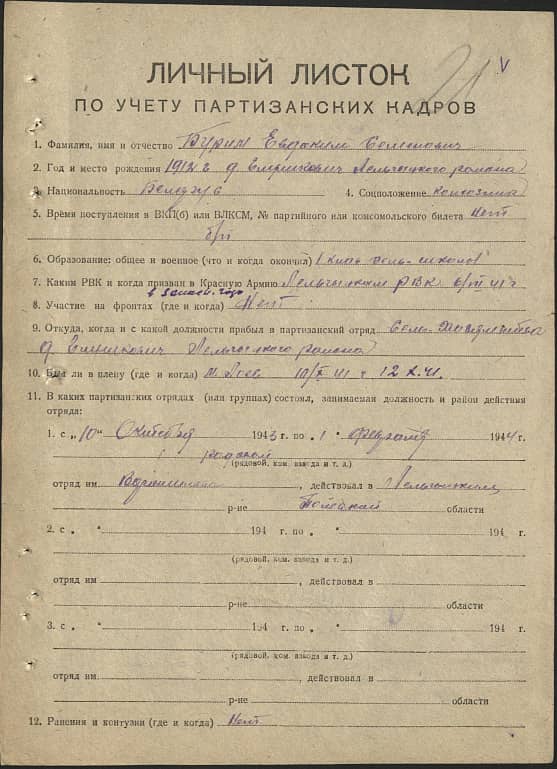 V
ЛИЧНЫЙ ЛИСТОК
ПО УЧЕТУ ПАРТИЗАНСКИХ КАДРОВ
1. Фамилия, имя и отчество Бурим Евдоким Семенович
2. Год и место рождения 1912 г д. Лельчицкого района
3. Национальность Белорус 4. Соцположение
5. Время поступления в ВКП(б) или ВЛКСМ, № партийного или комсомольского билета Нет
б/п
6. Образование: общее и военное (что и когда окончил) 1 клас
7. Каким РВК и когда призван в Красную Армию Лельчицким РВК 6/VII 41 г
в
8. Участие на фронтах (где и когда) Нет
9. Откуда, когда и с какой должности прибыл в партизанский отряд
д. Лельчицкого района
10. Был ли в плену (где и когда) 10/X 41 г 12.X.41.
11. В каких партизанских отрядах (или группах) состоял, занимаемая должность и район действия
отряда:
1. с „10“ Октября 1943 г. по „1“ февраля 1944 г.
рядовой
(рядовой, ком. взвода и т. д.)
отряд им Ворошилова, действовал в Лельчицком
р-не Полесской области
2. с „ “ 194 г. по „ “ 194 г.
(рядовой, ком. взвода и т. д.)
отряд им , действовал в
р-не области
3. с „ “ 194 г. по „ “ 194 г.
(рядовой, ком. взвода и т. д.)
отряд им , действовал в
р-не области
12. Ранения и контузии (где и когда) Нет